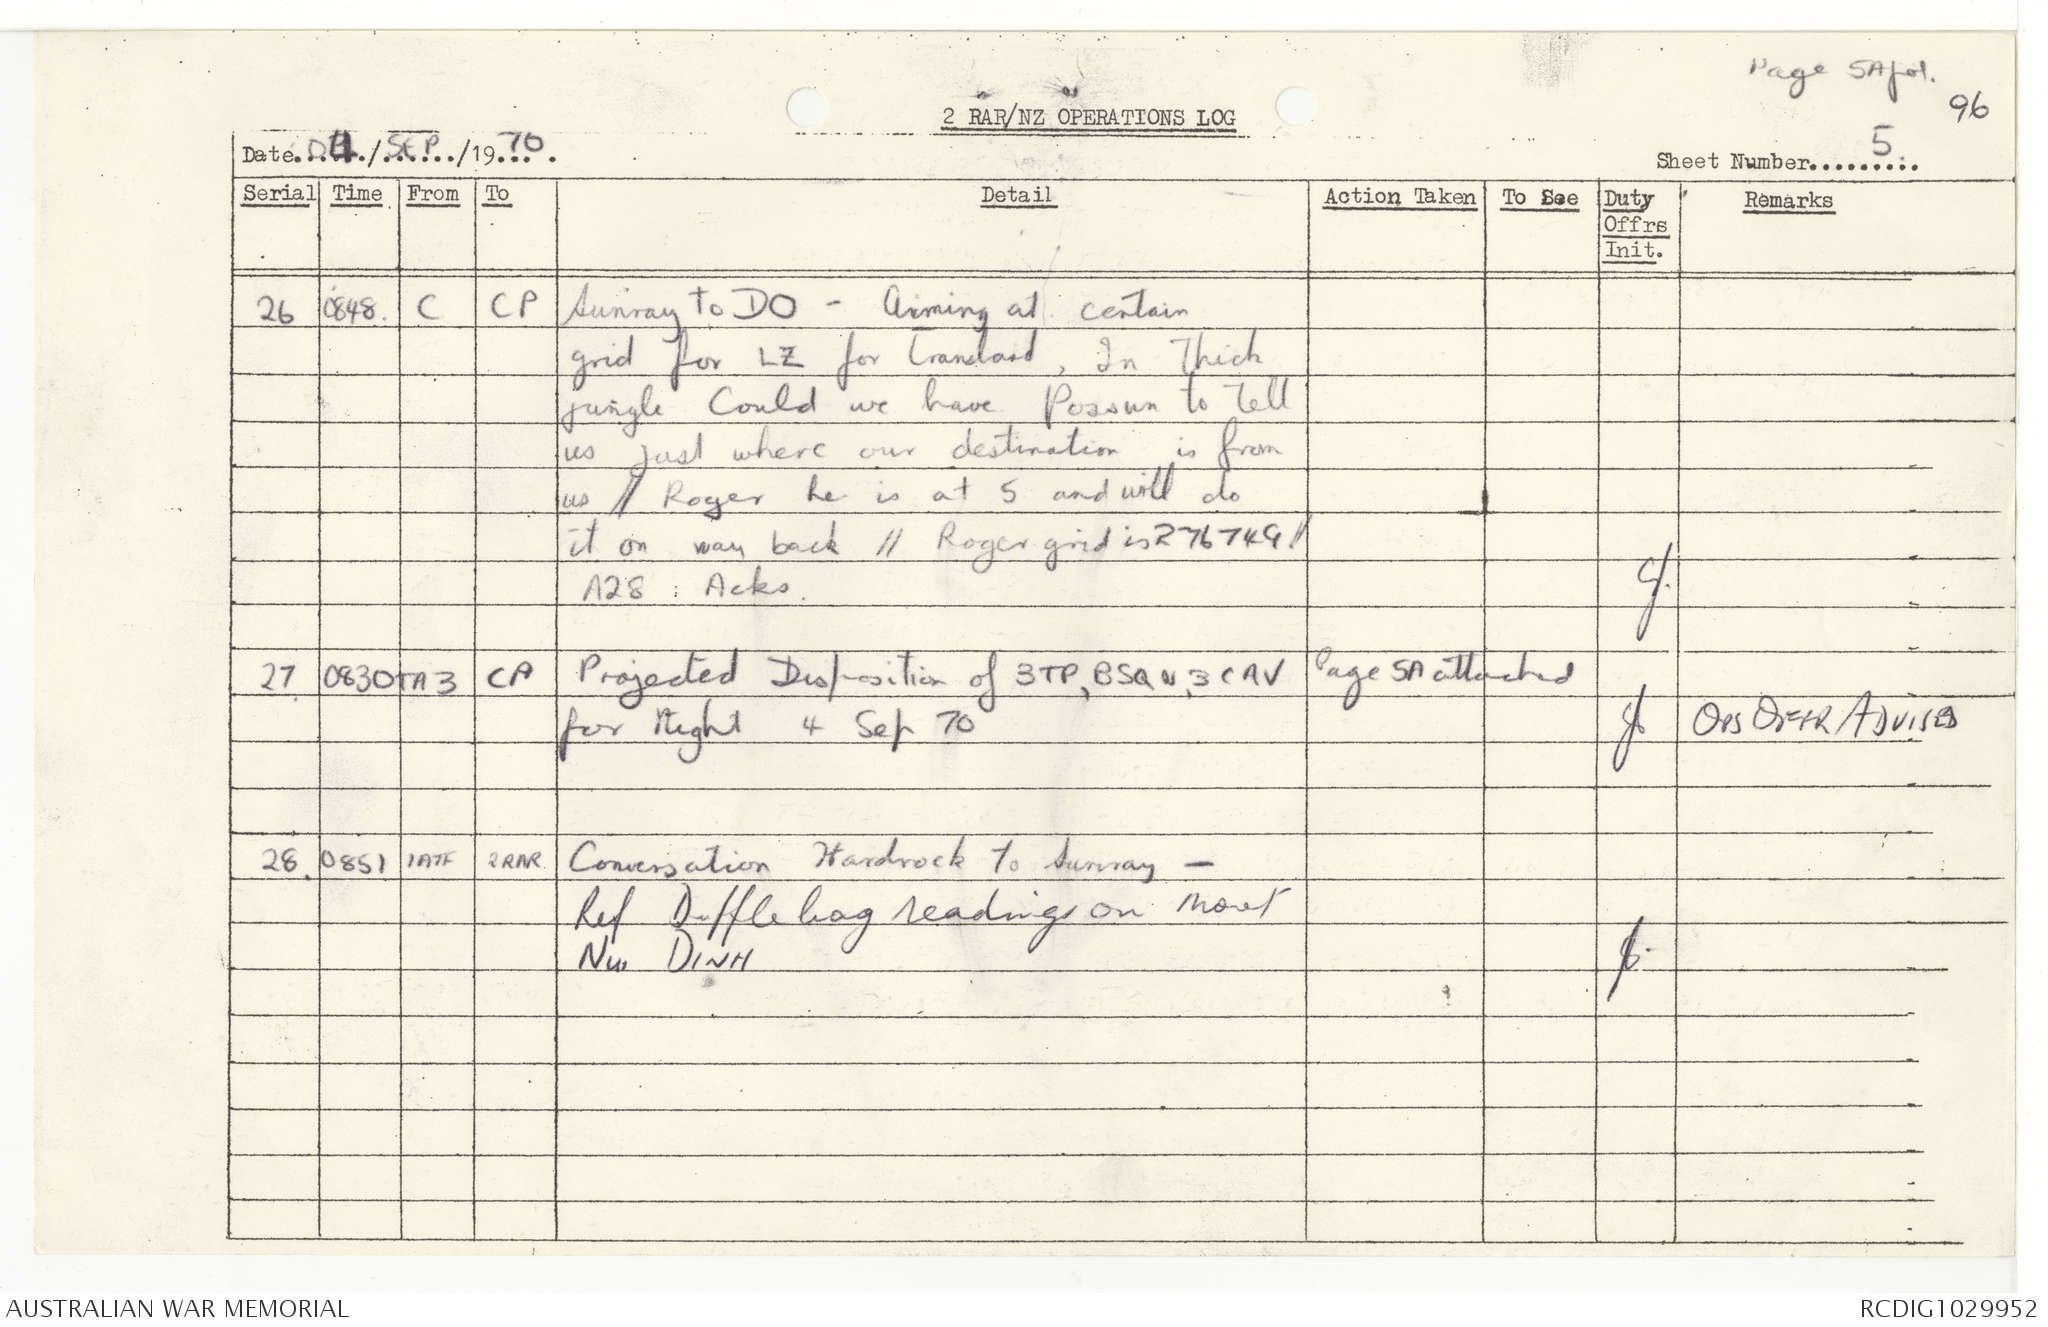 Page 5A fol.
96
2 RAR/NZ OPERATIONS LOG
Date 04/SEP/1970.
Sheet Number 5.
Serial Time From To Detail Action Taken To See Duty Offrs Init. Remarks
26 0848. C CP Sunray to DO - Aiming at certain
grid for LZ for , In thick
jungle Could we have Possum to tell
us just where our destination is from
us // Roger he is at 5 and will do
it on way back // Roger grid is 276749 //
A28 : Acks.
27 0830 TA3 CP Projected Disposition of 3TP, BSQN, 3 CAV Page 5A attached
for Night 4 Sep 70 OPS OFFR ADVISED
28. 0851 1ATF 2RAR Conversation Hardrock to Sunray -
Ref Duffle bag readings on
NUI DINH
AUSTRALIAN WAR MEMORIAL
RCDIG1029952